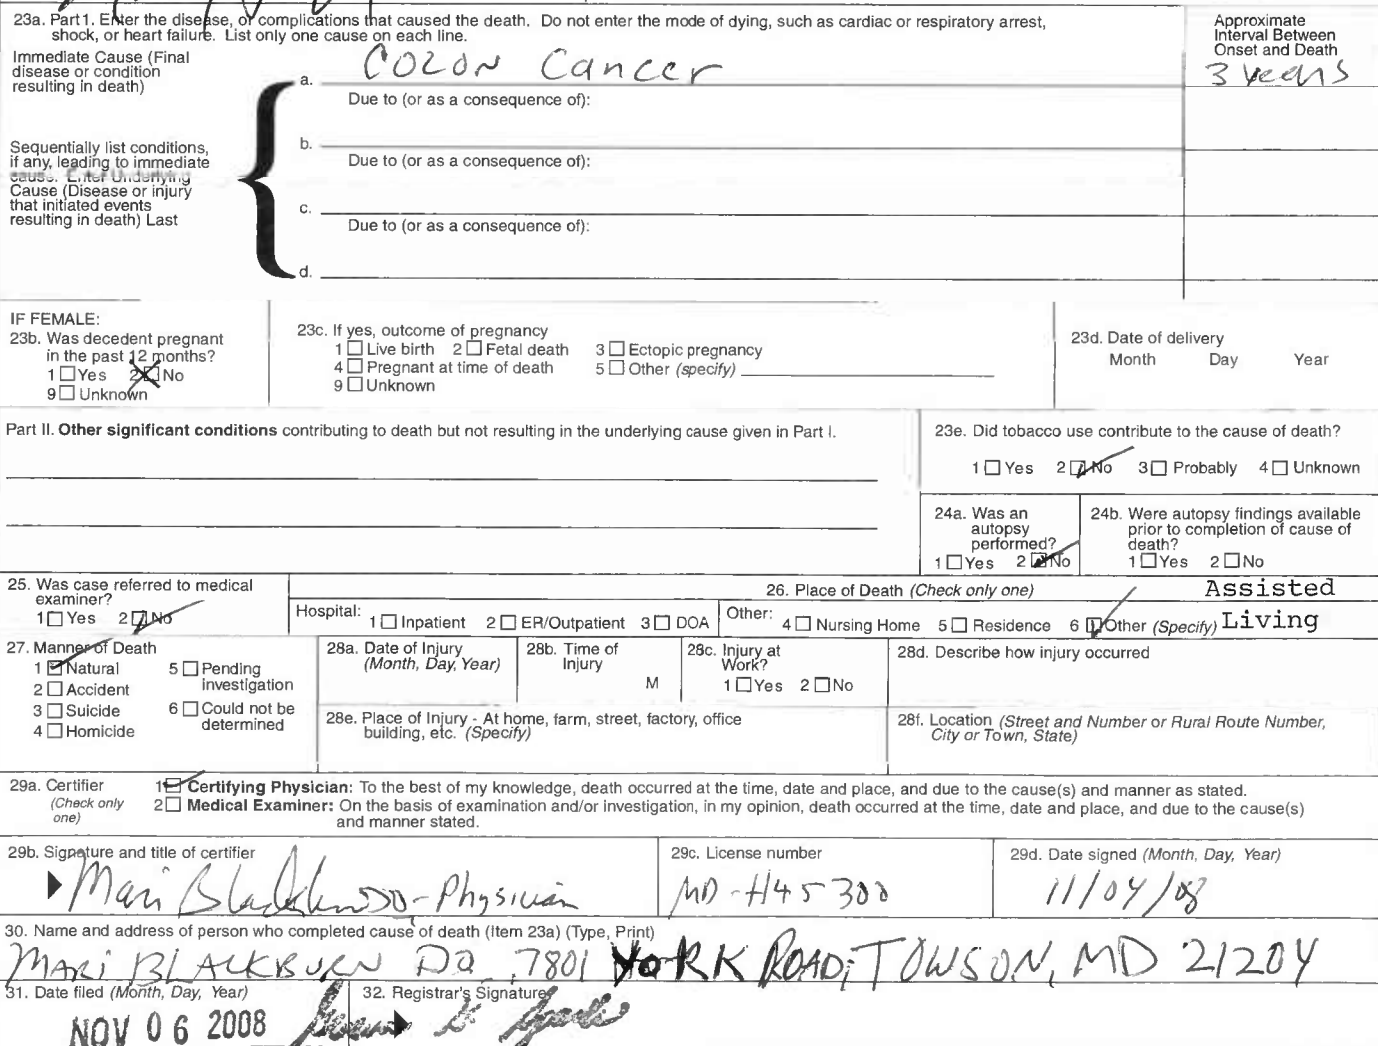 23a. Part1. Enter the disease, or complications that caused the death. Do not enter the mode of dying, such as cardiac or respiratory arrest,
shock, or heart failure. List only one cause on each line.
Approximate
Interval Between
Onset and Death
Immediate Cause (Final
disease or condition
resulting in death)
a. COLON Cancer
3 years
Due to (or as a consequence of):
b.
Sequentially list conditions,
if any, leading to immediate
cause. Enter Underlying
Cause (Disease or injury
that initiated events
resulting in death) Last
Due to (or as a consequence of):
c.
Due to (or as a consequence of):
d.
IF FEMALE:
23b. Was decedent pregnant
in the past 12 months?
1 Yes 2 No
9 Unknown
23c. If yes, outcome of pregnancy
1 Live birth 2 Fetal death 3 Ectopic pregnancy
4 Pregnant at time of death 5 Other (specify)
9 Unknown
23d. Date of delivery
Month Day Year
Part II. Other significant conditions contributing to death but not resulting in the underlying cause given in Part I.
23e. Did tobacco use contribute to the cause of death?
1 Yes 2 No 3 Probably 4 Unknown
24a. Was an
autopsy
performed?
1 Yes 2 No
24b. Were autopsy findings available
prior to completion of cause of
death?
1 Yes 2 No
25. Was case referred to medical
examiner?
1 Yes 2 No
26. Place of Death (Check only one)
Hospital: 1 Inpatient 2 ER/Outpatient 3 DOA
Other: 4 Nursing Home 5 Residence 6 Other (Specify) Assisted
Living
27. Manner of Death
1 Natural 5 Pending
investigation
2 Accident
3 Suicide 6 Could not be
determined
4 Homicide
28a. Date of Injury
(Month, Day, Year)
28b. Time of
Injury
M
28c. Injury at
Work?
1 Yes 2 No
28d. Describe how injury occurred
28e. Place of Injury - At home, farm, street, factory, office
building, etc. (Specify)
28f. Location (Street and Number or Rural Route Number,
City or Town, State)
29a. Certifier
(Check only
one)
1 Certifying Physician: To the best of my knowledge, death occurred at the time, date and place, and due to the cause(s) and manner as stated.
2 Medical Examiner: On the basis of examination and/or investigation, in my opinion, death occurred at the time, date and place, and due to the cause(s)
and manner stated.
29b. Signature and title of certifier
Mari Blackburn DO - Physician
29c. License number
MD-H45300
29d. Date signed (Month, Day, Year)
11/04/08
30. Name and address of person who completed cause of death (Item 23a) (Type, Print)
MARI BLACKBURN DO, 7801 YORK ROAD, TOWSON, MD 21204
31. Date filed (Month, Day, Year)
NOV 06 2008
32. Registrar's Signature